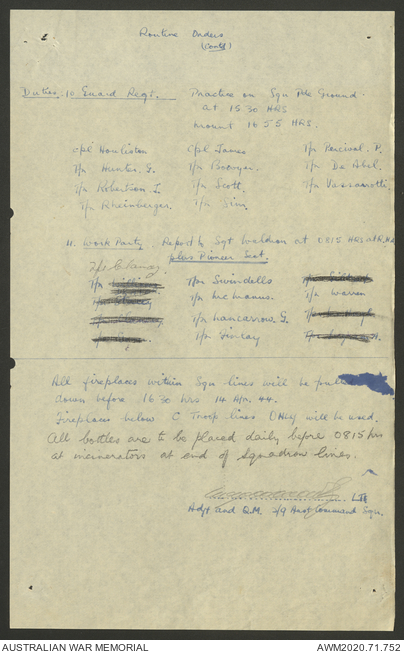 Routine Orders
(contd)
Duties. 10. Guard Regs. Practice on Sqn Pde Ground.
at 1530 HRS
mount 1655 HRS.
Cpl Houliston Cpl James Tpr Percival. P.
Tpr Hunter. G. Tpr Bowyer. Tpr De Abel.
Tpr Robertson. I. Tpr Scott. Tpr Vassarotti.
Tpr Rheinberger. Tpr Sim.
11. Work Party. Report to Sgt Waldron at 0815 HRS at R.H.Q
plus Pioneer Sect.
Tpr Swindells
Tpr McManus. Tpr Warren
Tpr Nancarrow. G.
Tpr Finlay
All fireplaces within Sqn lines will be
down before 1630 hrs 14 Apr. 44.
Fireplaces below C Troop lines ONLY will be used.
All bottles are to be placed daily before 0815 hrs
at incinerators at end of Squadron lines.
Lt
Adjt and QM 2/9 Aust Command Sqn.
AUSTRALIAN WAR MEMORIAL AWM2020.71.752